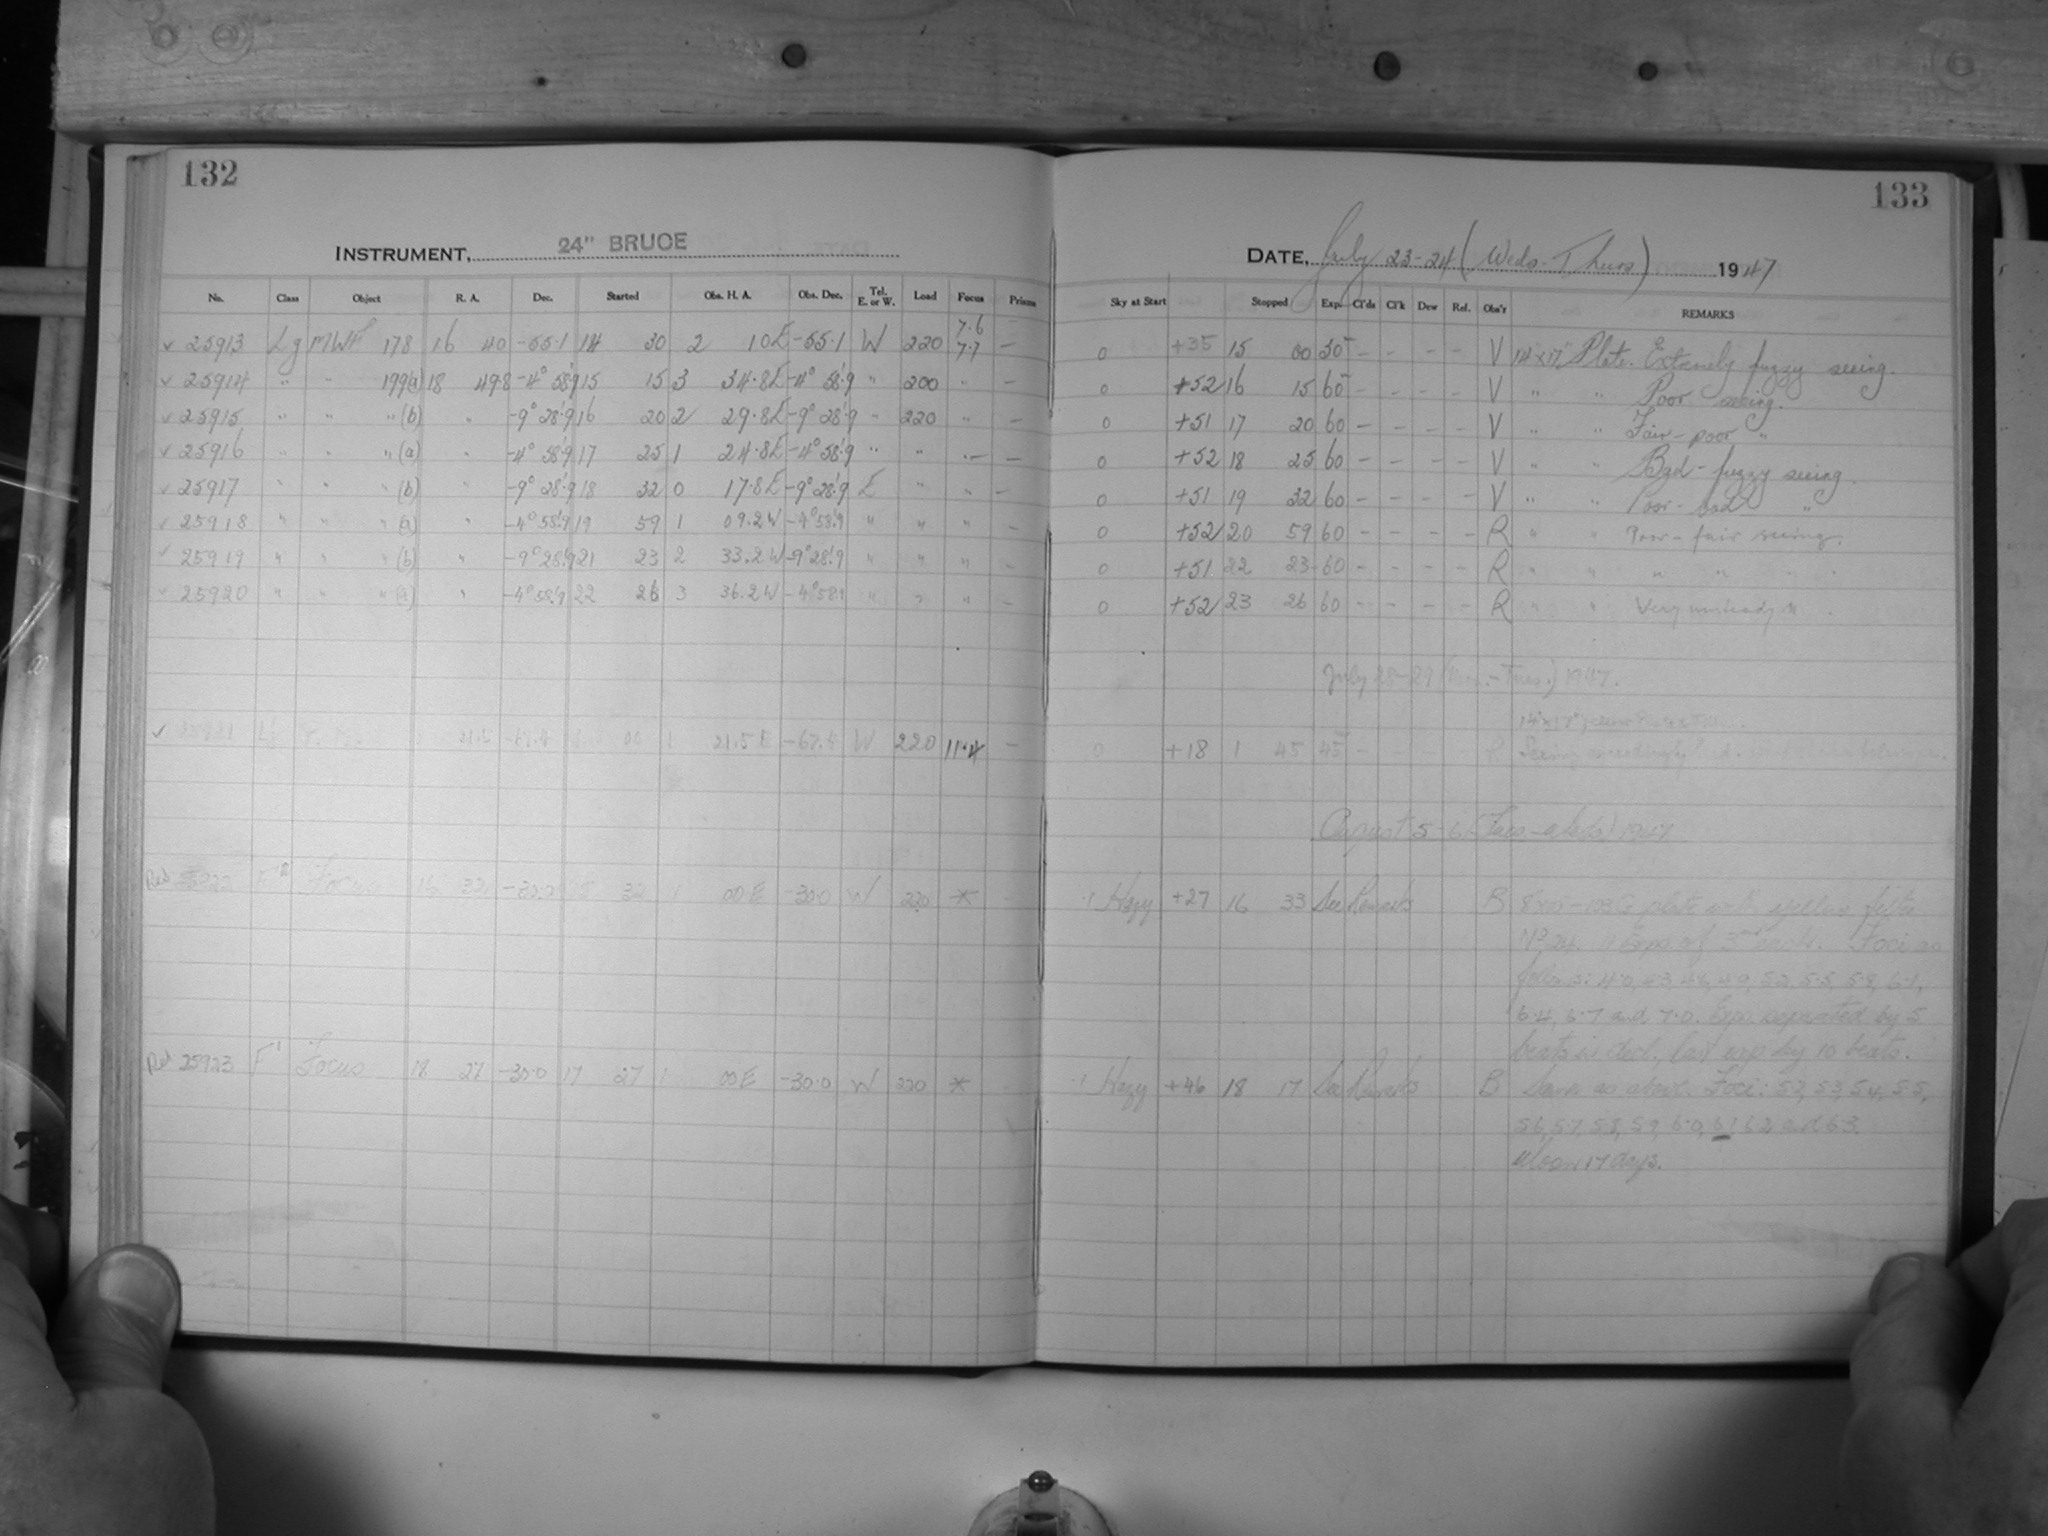 132
INSTRUMENT, 24" BRUCE
No. Class Object R. A. Dec. Started Obs. H. A. Obs. Dec. Tel. E. or W. Load Focus Prisms
25913 Lg MWF 178 16 40 -55.1 14 30 2 10E -55.1 W 220 7.6 7.7 —
25914 " " 199(a) 18 49.8 -4° 58'.9 15 15 3 34.8E -4° 58'.9 " 200 " —
25915 " " " (b) " -9° 28'.9 16 20 2 29.8E -9° 28'.9 " 220 " —
25916 " " " (a) " -4° 58'.9 17 25 1 24.8E -4° 58'.9 " " " —
25917 " " " (b) " -9° 28'.9 18 32 0 17.8E -9° 28'.9 E " " —
25918 " " " (a) " -4° 58'.9 19 59 1 09.2W -4° 58'.9 " " " —
25919 " " " (b) " -9° 28'.9 21 23 2 33.2W -9° 28'.9 " " " —
25920 " " " (a) " -4° 58'.9 22 26 3 36.2W -4° 58'.9 " " " —
00 1 21.5E -67.4 W 220 11.4 —
Focus 16 32 -30.0 15 32 1 00E -30.0 W 220 *
25923 F Focus 18 27 -30.0 17 27 1 00E -30.0 W 220 *
133
DATE, July 23-24 (Weds.-Thurs) 1947
Sky at Start Stopped Exp. Cl'ds Cl'k Dew Ref. Obs'r REMARKS
0 +35 15 00 30 — — — — V 14"x17" Plate. Extremely fuzzy seeing.
0 +52 16 15 60 — — — — V " " Poor seeing.
0 +51 17 20 60 — — — — V " " Fair-poor "
0 +52 18 25 60 — — — — V " " Bad-fuzzy seeing.
0 +51 19 32 60 — — — — V " " Poor-bad "
0 +52 20 59 60 — — — — R " " Poor-fair seeing.
0 +51 22 23 60 — — — — R " " " " "
0 +52 23 26 60 — — — — R " " Very unsteady "
July 28-29 (Mon.-Tues.) 1947.
14"x17"
0 +18 1 45 45 — R Seeing exceedingly bad.
August 5-6 (Tues-Weds) 1947
.1 Hazy +27 16 33 See Remarks B 8x10-103G plate with yellow filter
No 24. 11 Exps of 3 each. Foci as
follows: 4.0, 4.3, 4.6, 4.9, 5.2, 5.5, 5.8, 6.1,
6.4, 6.7 and 7.0. Exps separated by 5
beats in decl., last exp by 10 beats.
.1 Hazy +46 18 17 See Remarks B Same as above. Foci: 5.2, 5.3, 5.4, 5.5,
5.6, 5.7, 5.8, 5.9, 6.0, 6.1, 6.2 and 6.3.
Moon 17 days.